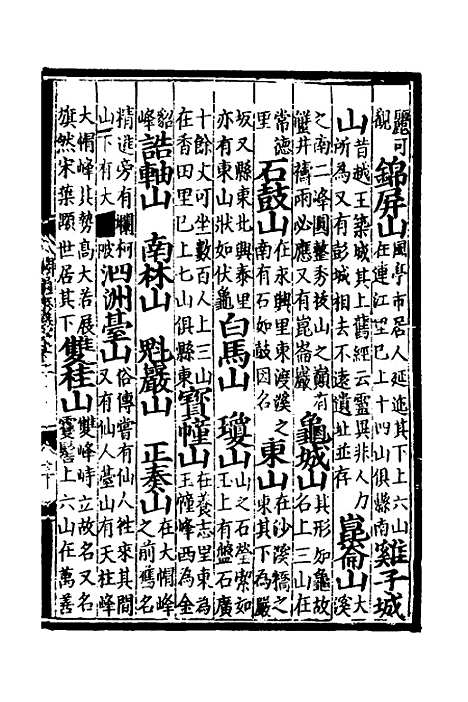 鹽可觀錦屏山風亭市居人延迤其下上六山在連江里已上十四山俱縣南雞子城
山昔越王築城其上舊經云靈異非人力所為又有彭城相去不遠遺址並存崑崙山大溪
之南二峰圓整秀拔山之巔有蟹井禱雨必應又有崑崙巖龜城山其形如龜故名上三山在
常德里石鼓山在永興里東渡溪之南有石如鼓因名東山在沙溪橋之東其下為嚴
坂又縣東北興泰里亦有東山狀如伏龜白馬山 瓊山山之石瑩素如玉上有盤石廣
十餘丈可坐數百人上三山在香田里已上七山俱縣東寳幢山在養志里東為王幢峰西為金
貂峰誥軸山 南林山 魁巖山 正奏山在大帽峰之前舊名
精進旁有欄柯山下有大陂泗洲臺山俗傳嘗有仙人往來其間又有仙人臺山有天柱峰
大帽峰其勢高大若展旗然宋葉顒世居其下雙桂山雙峰時立故名又名雲髻上六山在萬善